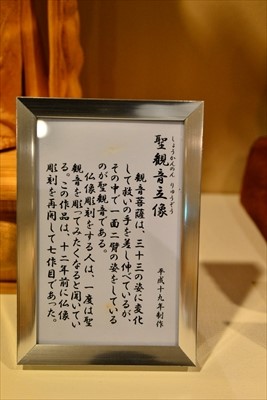 しょうかんのん りゅうぞう
聖観音立像
平成十九年制作
観音菩薩は、三十三の姿に変化
して救いの手を差し伸べているが、
その中で一面二臂の姿をしている
のが聖観音である。
仏像彫刻をする人は、一度は聖
観音を彫ってみたくなると聞いてい
る。この作品は、十二年前に仏像
彫刻を再開して七作目であった。